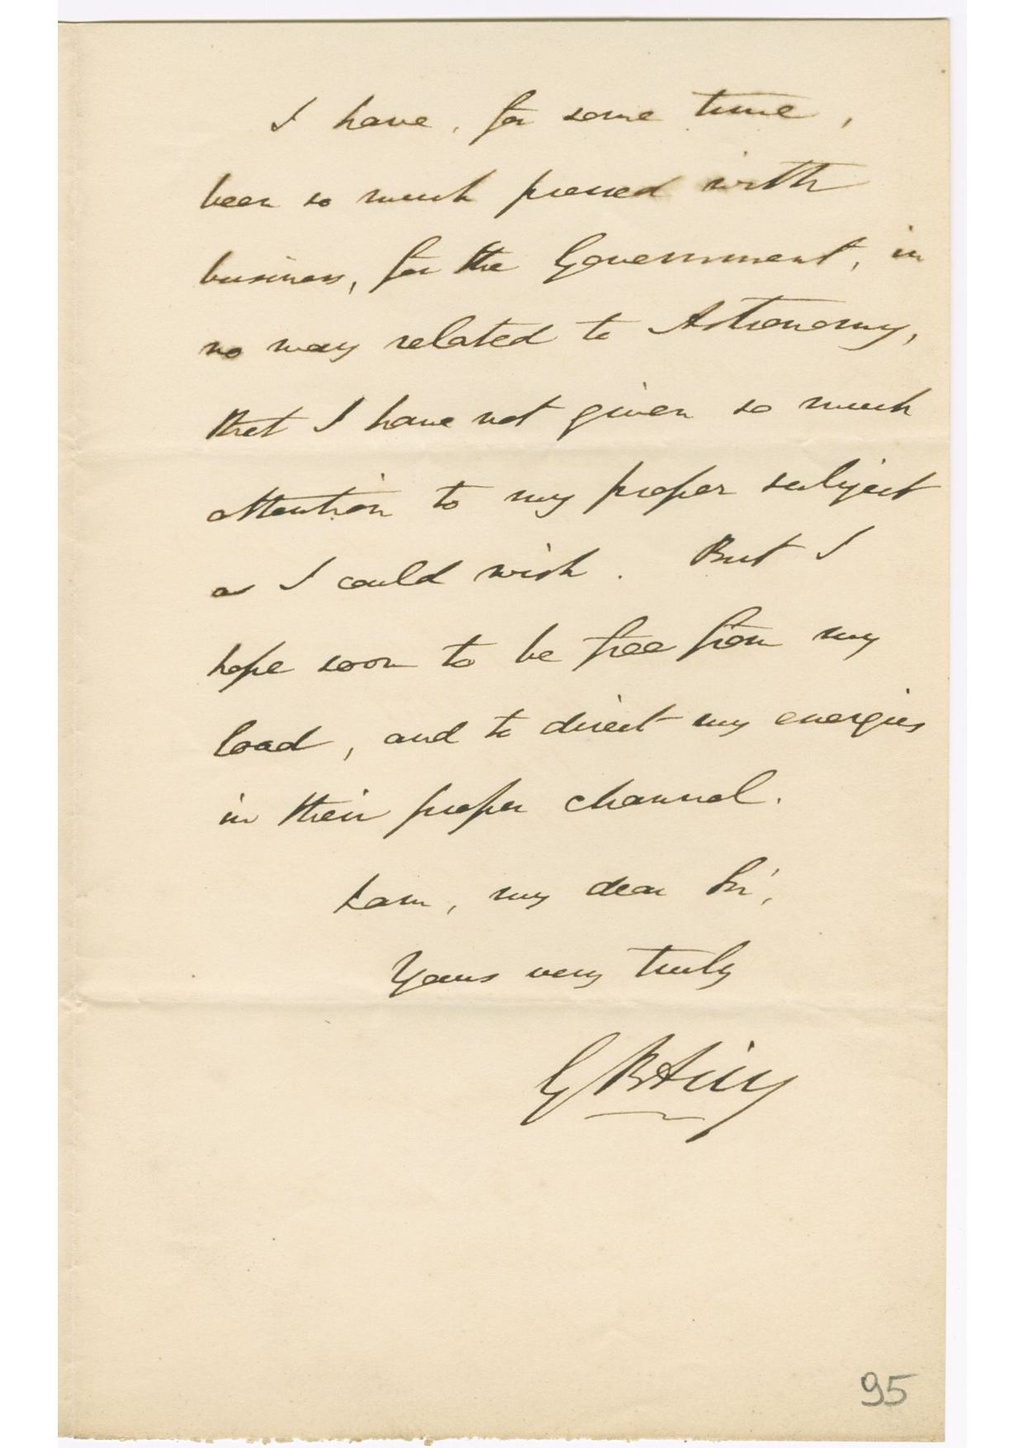 I have, for some time,
been so much pressed with
business, for the Government, in
no way related to Astronomy,
that I have not given so much
attention to my proper subject
as I could wish. But I
hope soon to be free from my
load, and to direct my energies
in their proper channel.
I am, my dear Sir,
Yours very truly
G B Airy
95